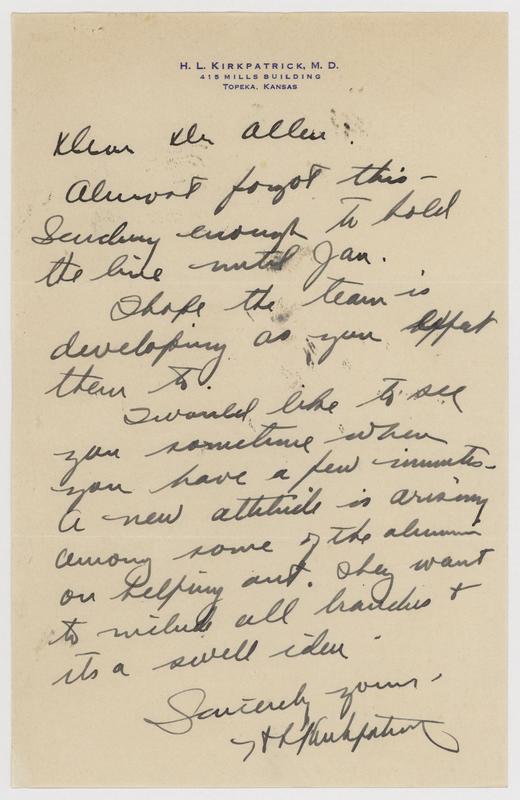 H. L. KIRKPATRICK, M. D.
415 MILLS BUILDING
TOPEKA, KANSAS
Dear Dr Allen:
Almost forgot this –
Sending enough to hold
the line until Jan.
I hope the team is
developing as you expect
them to.
I would like to see
you sometime when
you have a few minutes –
A new attitude is arising
among some of the alumni
on helping out. They want
to include all branches +
its a swell idea.
Sincerely yours,
H L Kirkpatrick